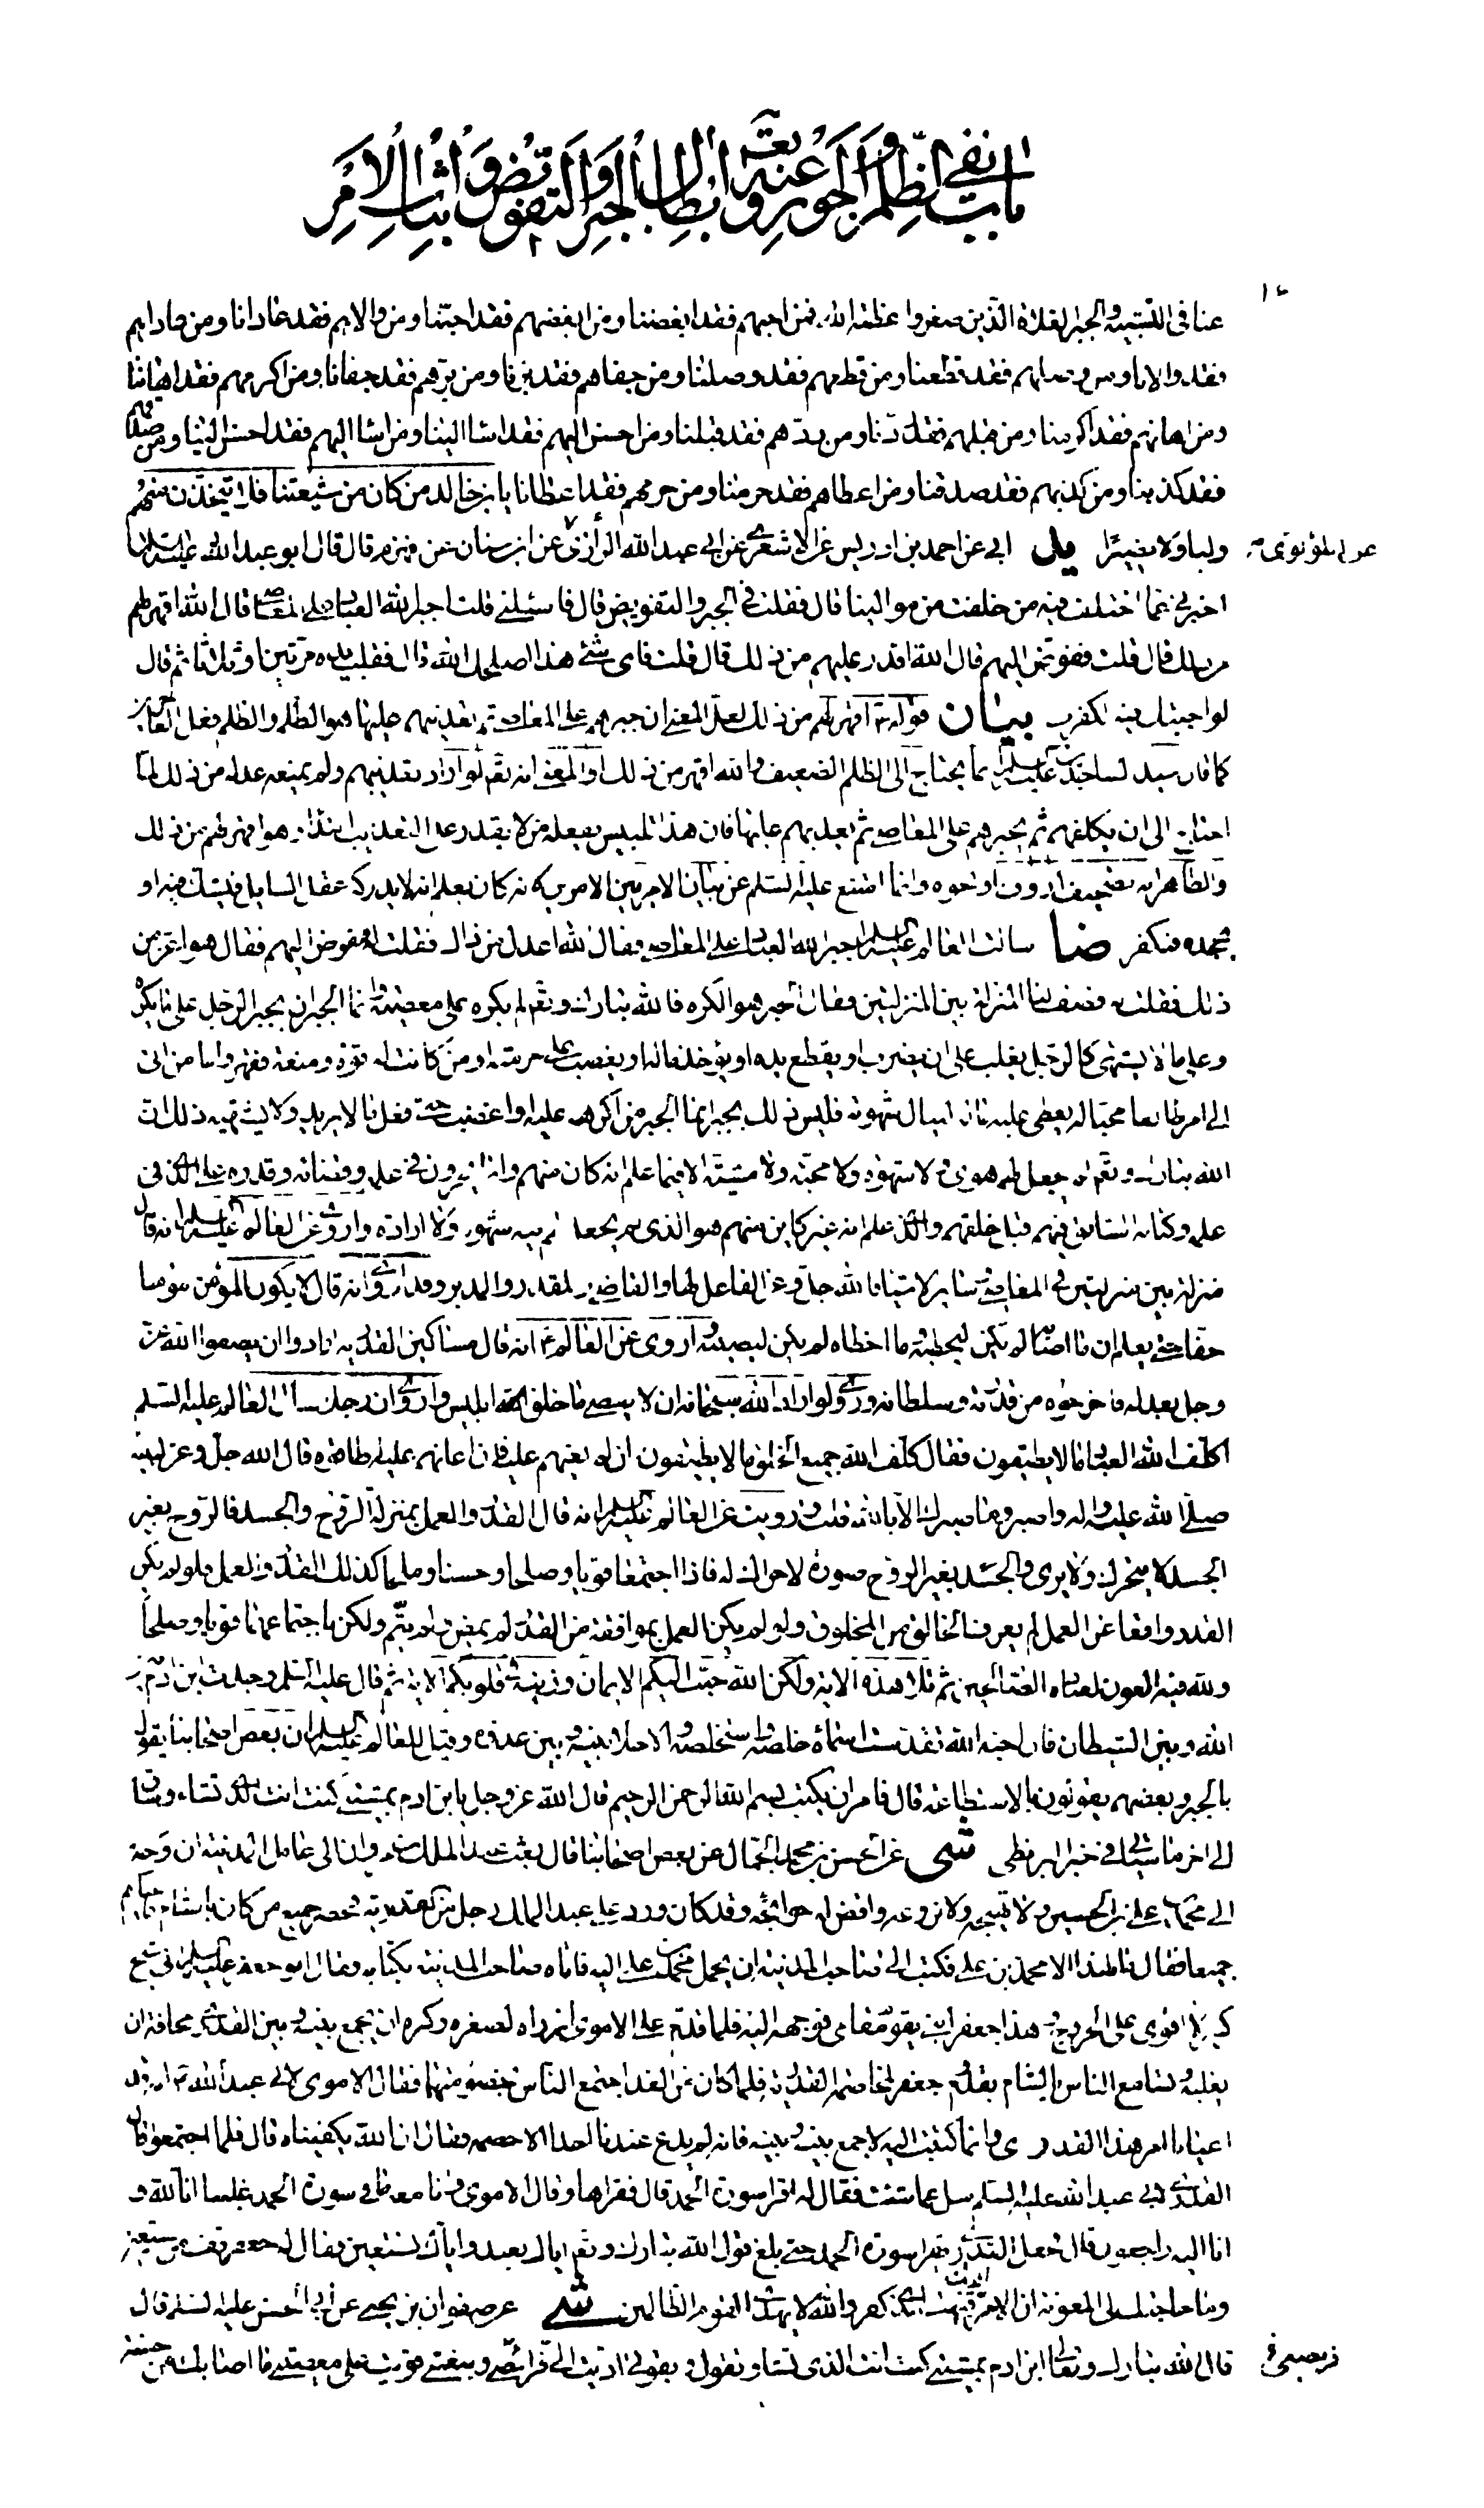 باب نفى الظلم والجور عنه تعالى وابطال الجبر والتفويض واثبات الامر
عنا فى التشبيه والجبر الغلاة الذين صغروا عظمة الله فمن احبهم فقد ابغضنا ومن ابغضهم فقد احبنا ومن والاهم فقد عادانا ومن عاداهم
فقد والانا ومن وصلهم فقد قطعنا ومن قطعهم فقد وصلنا ومن جفاهم فقد برنا ومن برهم فقد جفانا ومن اكرمهم فقد اهاننا
ومن اهانهم فقد اكرمنا ومن قبلهم فقد ردنا ومن ردهم فقد قبلنا ومن احسن اليهم فقد اساء الينا ومن اساء اليهم فقد احسن الينا ومن صدقهم
فقد كذبنا ومن كذبهم فقد صدقنا ومن اعطاهم فقد حرمنا ومن حرمهم فقد اعطانا يا بن خالد من كان من شيعتنا فلا يتخذن منهم
وليا ولا نصيرا يد ابى عن احمد بن ادريس عن الاشعرى عن ابى عبد الله الرازى عن ابن سنان عن مهزم قال قال ابو عبد الله عليه السلام
اخبرنى عما اختلف فيه من خلفت من موالينا قال فقلت فى الجبر والتفويض قال فاسئلنى قلت اجبر الله العباد على المعاصى قال الله اقهر لهم
من ذلك قال قلت ففوض اليهم قال الله اقدر عليهم من ذلك قال قلت فاى شئ هذا اصلحك الله قال فقلب يده مرتين او ثلاثا ثم قال
لو اجبتك فيه لكفرت بيان قوله ع اقهر لهم من ذلك لعل المعنى ان جبرهم على المعاصى ثم تعذيبهم عليها هو الظلم والظلم فعل العاجز
كما قال سيد الساجدين عليه السلام انما يحتاج الى الظلم الضعيف والله اقهر من ذلك او المعنى انه تعالى لو اراد تعذيبهم ولم يمنعه عدله من ذلك لما
احتاج الى ان يكلفهم ثم يجبرهم على المعاصى ثم يعذبهم عليها فان هذا تلبيس يفعله من لا يقدر على التعذيب ابتداء وهو اقهر لهم من ذلك
والظاهر انه تصحيف ارؤف او نحوه وانما امتنع عليه السلم عن بيان الامر بين الامرين لانه كان يعلم انه لا يدركه عقل السايل فيشك فيه او
يجحده فيكفر ضا سالت العالم عليه السلام اجبر الله العباد على المعاصى فقال الله اعدل من ذلك فقلت له ففوض اليهم فقال هو اعز من
ذلك فقلت له فصف لنا المنزلة بين المنزلتين فقال الجبر هو الكره فالله تبارك وتعالى لم يكره على معصيته وانما الجبر ان يجبر الرجل على ما يكره
وعلى ما لا يشتهى كالرجل يغلب على ان يضرب او يقطع يده او يؤخذ ماله او يغصب على حرمته او من كانت له قوة ومنعة فقهر واما من اتى
الى امر طائعا محبا له يعطى عليه ماله لينال شهوته فليس ذلك بجبر انما الجبر من اكره عليه او اغضب حتى فعل ما لا يريد ولا يشتهيه وذلك ان
الله تبارك وتعالى لم يجعل لهم هوى ولا شهوة ولا محبة ولا مشية الا فيما علم انه كان منهم وانما يجرون فى علمه وقضائه وقدره على الذى فى
علمه وكتابه السابق فيهم قبل خلقهم والذى علم انه غير كاين منهم هو الذى لم يجعل لهم فيه شهوة ولا ارادة واروى عن العالم عليه السلام انه قال
منزلة بين منزلتين فى المعاصى وساير الاشياء فالله جل وعز الفاعل لها والقاضى والمقدر والمدبر وقد اروى انه قال لا يكون المؤمن مؤمنا
حقا حتى يعلم ان ما اصابه لم يكن ليخطئه وما اخطاه لم يكن ليصيبه واروى عن العالم ع انه قال مساكين القدرية ارادوا ان يصفوا الله عز
وجل بعدله فاخرجوه من قدرته وسلطانه وروى لو اراد الله سبحانه ان لا يعصى ما خلق الله ابليس واروى ان رجلا سال العالم عليه السلم
اكلف الله العباد ما لا يطيقون فقال كلف الله جميع الخلق ما لا يطيقون ان لم يعنهم عليه فان اعانهم عليه اطاقوه قال الله جل وعز لنبيه
صلى الله عليه واله واصبر وما صبرك الا بالله قلت ورويت عن العالم عليه السلام انه قال القدر والعمل بمنزلة الروح والجسد فالروح بغير
الجسد لا يتحرك ولا يرى والجسد بغير الروح صورة لا حراك له فاذا اجتمعا قويا وصلحا وحسنا وملحا كذلك القدر والعمل فلو لم يكن
القدر واقعا على العمل لم يعرف الخالق من المخلوق ولو لم يكن العمل بموافقة من القدر لم يمض ولم يتم ولكن باجتماعهما قويا وصلحا
ولله فيه العون لعباده الصالحين ثم تلا هذه الاية ولكن الله حبب اليكم الايمان وزينه فى قلوبكم الاية ثم قال عليه السلم وجدت ابن ادم بين
الله وبين الشيطان فان احبه الله تقدست اسماؤه خلصه واستخلصه والا خلا بينه وبين عدوه وقيل للعالم عليه السلام ان بعض اصحابنا يقول
بالجبر وبعضهم يقولون بالاستطاعة قال فامر ان يكتب بسم الله الرحمن الرحيم قال الله عز وجل يا بن ادم بمشيتى كنت انت الذى تشاء
الى اخر ما سياتى فى خبر البزنطى شى عن الحسن بن محمد الجمال عن بعض اصحابنا قال بعث عبد الملك بن مروان الى عامل المدينة ان وجه
الى محمد بن على بن الحسين ولا تهيجه ولا تروعه واقض له حوائجه وقد كان ورد على عبد الملك رجل من القدرية فحضر جميع من كان بالشام فاعياهم
جميعا فقال ما لهذا الا محمد بن على فكتب الى صاحب المدينة ان يحمل محمد بن على اليه فاتاه صاحب المدينة بكتابه فقال ابو جعفر عليه السلام انى شيخ
كبير لا اقوى على الخروج وهذا جعفر ابنى يقوم مقامى فوجهه اليه فلما قدم على الاموى ازدراه لصغره وكره ان يجمع بينه وبين القدرى مخافة ان
يغلبه وتسامع الناس بالشام بقدوم جعفر لمخاصمة القدرية فلما كان من الغد اجتمع الناس بخصومتهما فقال الاموى لابى عبد الله ع انه قد
اعيانا امر هذا القدرى وانما كتبت اليه لاجمع بينه وبينه فانه لم يدع عندنا احدا الا خصمه فقال ان الله يكفيناه قال فلما اجتمعوا قال
القدرى لابى عبد الله عليه السلم سل عما شئت فقال له اقرا سورة الحمد قال فقراها وقال الاموى وانا معه ما فى سورة الحمد غلبنا انا لله و
انا اليه راجعون قال فجعل القدرى يقرا سورة الحمد حتى بلغ قول الله تبارك وتعالى اياك نعبد واياك نستعين فقال له جعفر قف من تستعين
وما حاجتك الى المعونة ان الامر اليك فبهت الذى كفر والله لا يهدى القوم الظالمين شى عن صفوان بن يحيى عن ابى الحسن عليه السلم قال
قال الله تبارك وتعالى ابن ادم بمشيتى كنت انت الذى تشاء وتقول وبقوتى اديت الى فرائضى وبنعمتى قويت على معصيتى ما اصابك من حسنة